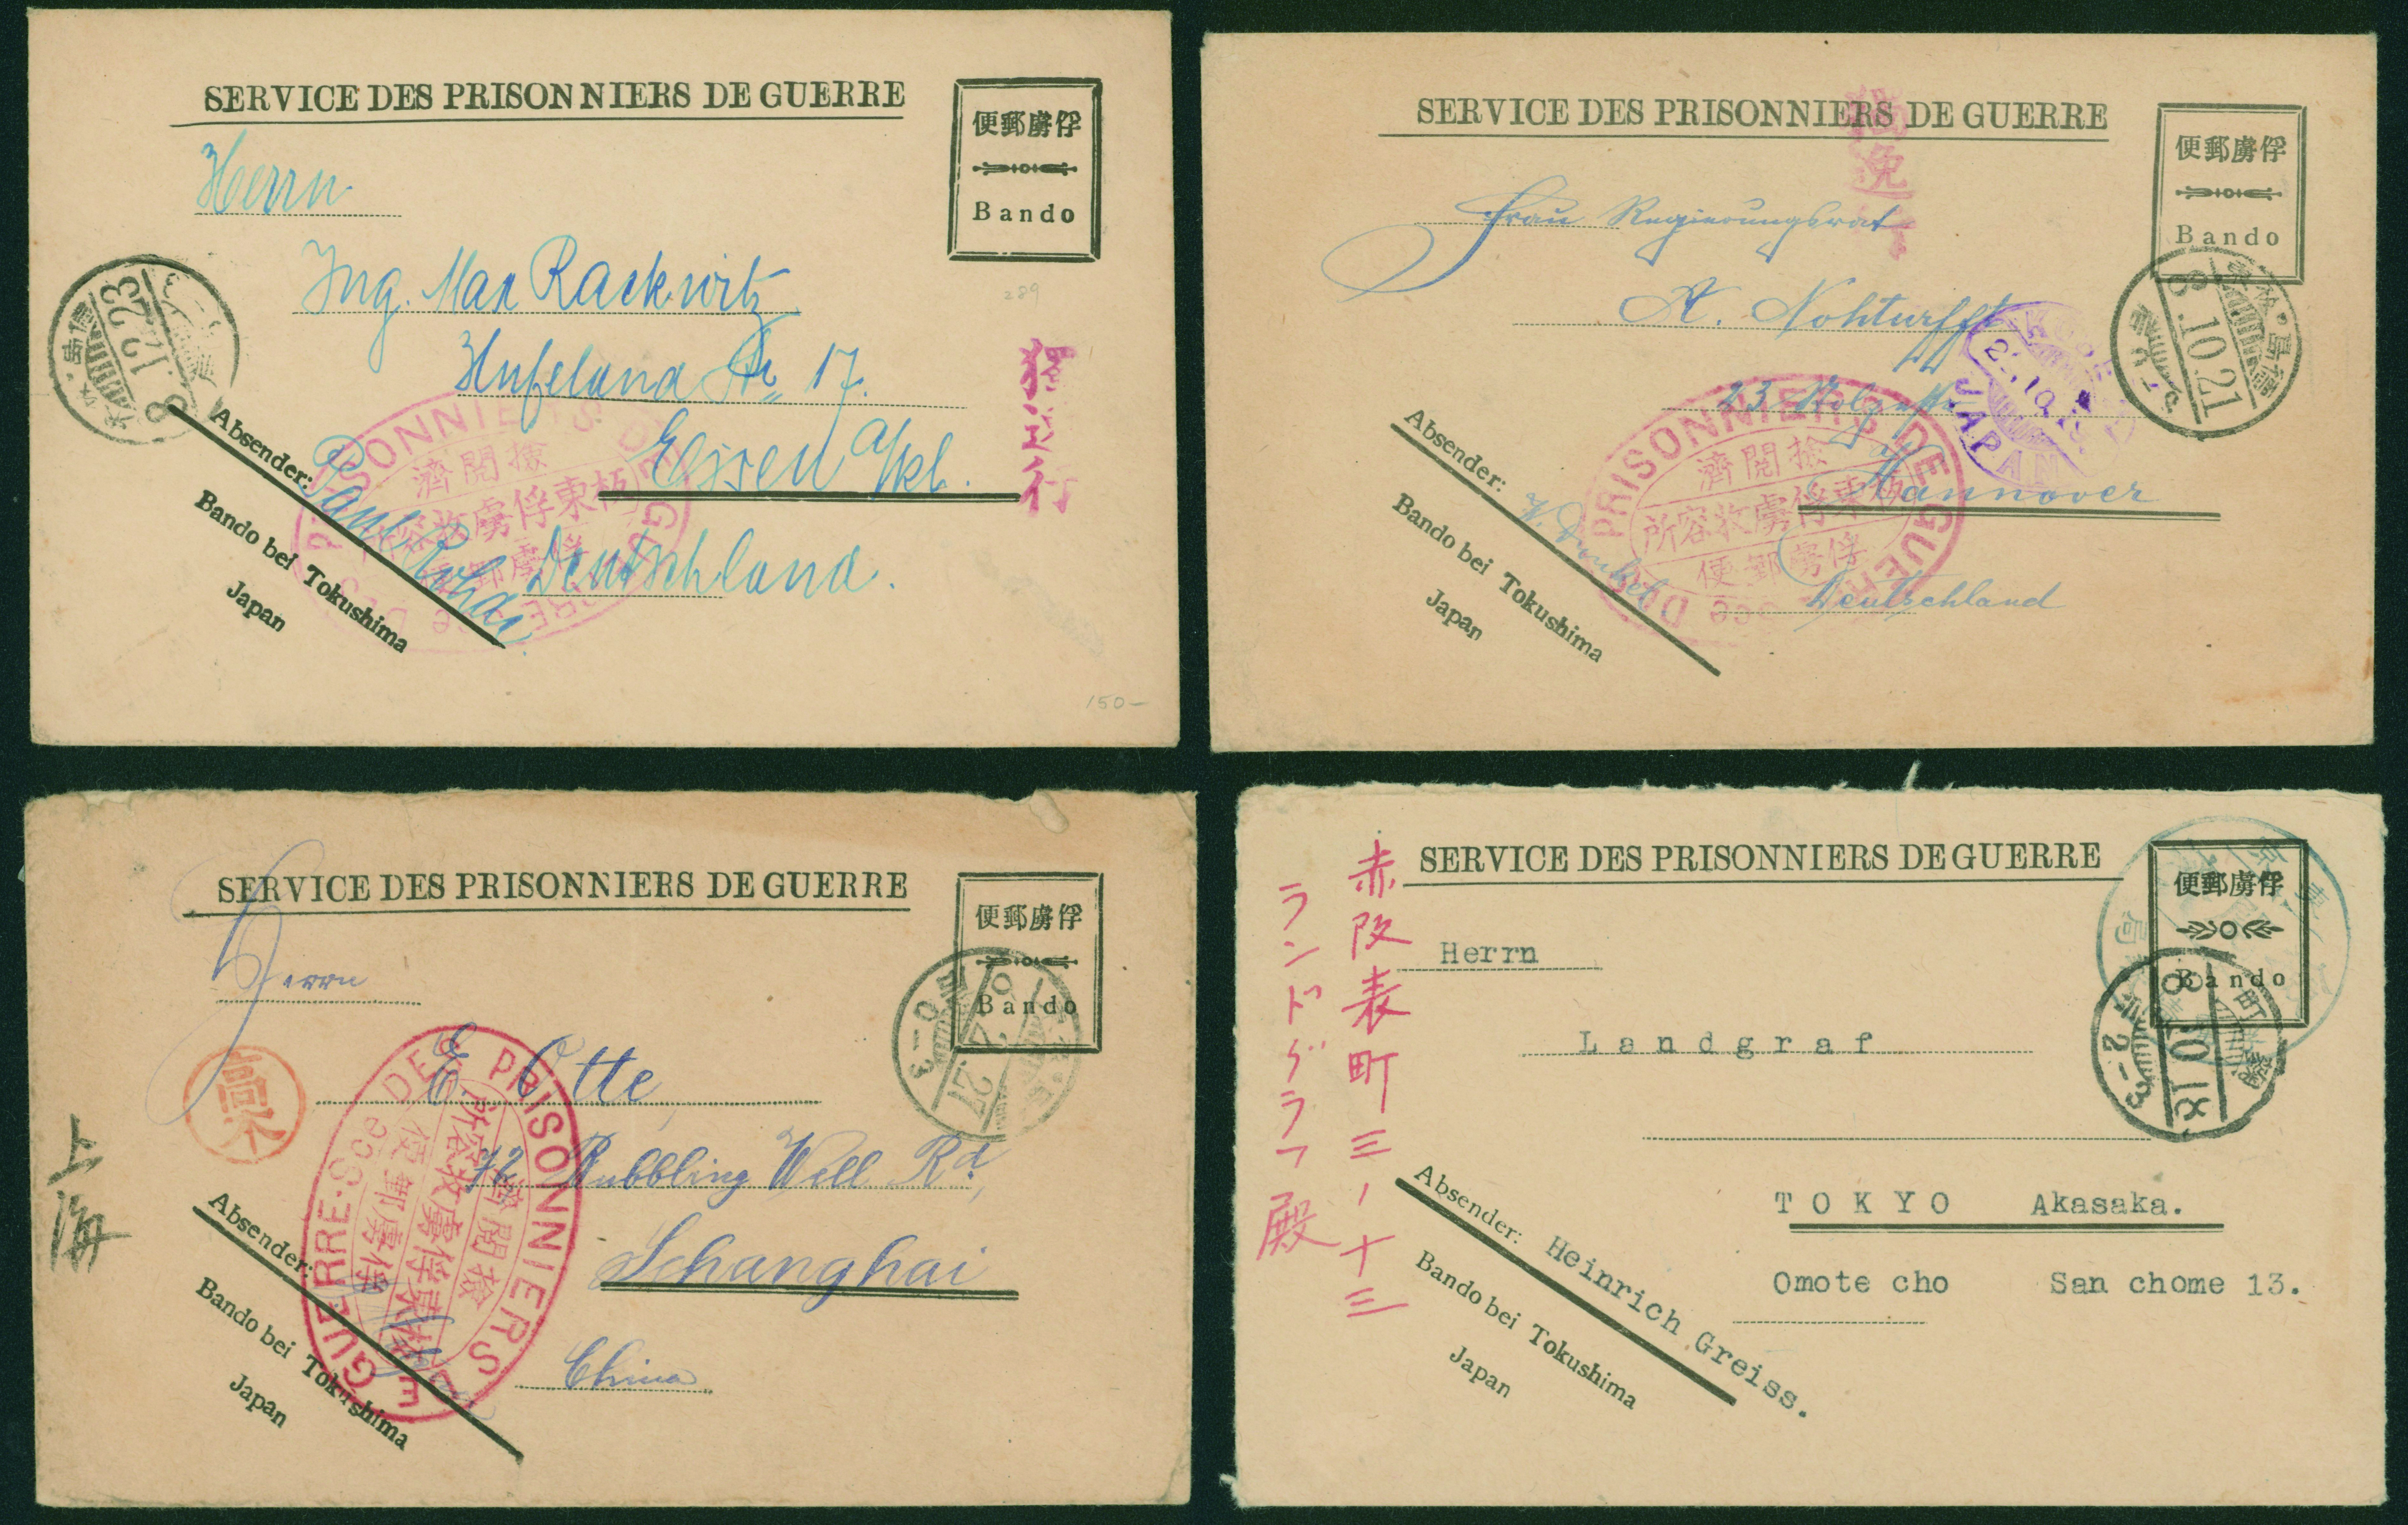 SERVICE DES PRISONNIERS DE GUERRE
便郵虜俘
Bando
Herrn
Ing. Max Rackwitz
Hufeland Str. 17.
Essen a/
Deutschland.
289
獨
行
8.12.23
Absender:
Paul
Bando bei Tokushima
Japan
PRISONNIERS DE GUERRE
濟閲檢
俘虜郵便
150—
SERVICE DES PRISONNIERS DE GUERRE
便郵虜俘
Bando
Frau Regierungsrat
A. Nohturfft
23
Hannover
Deutschland
8.10.21
KOBE
JAPAN
Absender:
Bando bei Tokushima
Japan
PRISONNIERS DE GUERRE
濟閲檢
所容收虜俘東板
便郵虜俘
SERVICE DES PRISONNIERS DE GUERRE
便郵虜俘
Bando
Herrn
E. Otte,
Bubbling Well Rd,
Schanghai
China
上海
Absender:
Bando bei Tokushima
Japan
Sce DES PRISONNIERS DE GUERRE
濟閲檢
便郵虜俘
SERVICE DES PRISONNIERS DE GUERRE
便郵虜俘
Bando
赤阪表町三ノ十三
ランドグラフ殿
Herrn
Landgraf
TOKYO Akasaka.
Omote cho San chome 13.
8.10.18
Absender: Heinrich Greiss.
Bando bei Tokushima
Japan